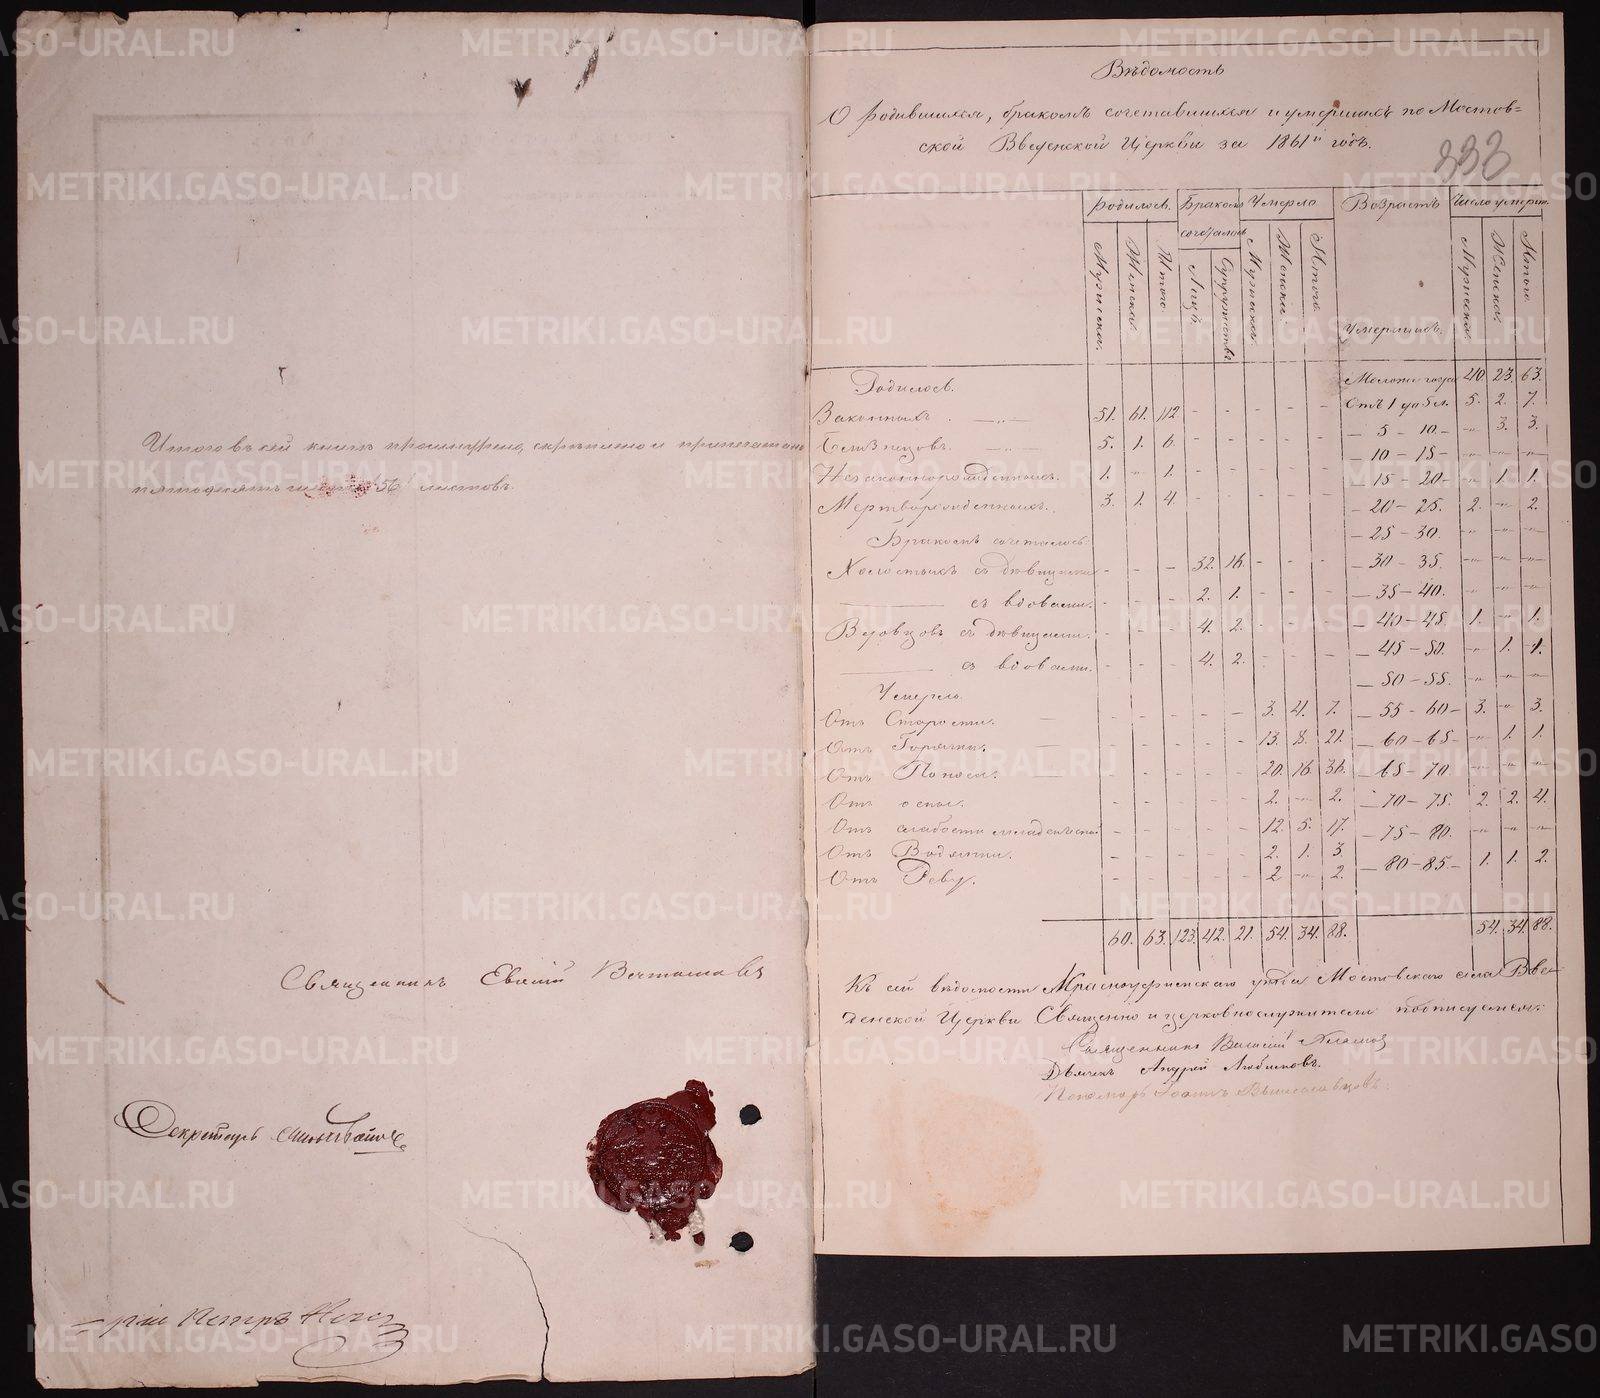 Итого въ сей книгѣ прошнуровано, скрѣплено и припечатано
пятьдесятъ шесть 56 листовъ.
Священникъ Евгений
Секретарь
Петръ
Вѣдомость
О родившихся, бракомъ сочетавшихся и умершихъ по Мостов=
ской Введенской Церкви за 1861й годъ.
333
Родилось. Бракомъ сочеталось Умерло Возрастъ умершихъ. Число умерш.
Мужеска. Женска. Итого Лицъ. Супружествъ Мужеска. Женска Итого. Мужеска. Женска. Итого
Родилось. Моложе года 40. 23. 63.
Законныхъ. 51. 61. 112 - - - - - Отъ 1 до 5 л. 5. 2. 7.
Близнецовъ. 5. 1. 6. - - - - - 5 - 10 - -"- 3. 3.
- 10 - 15 - -"- -"- -"-
Незаконнорожденныхъ. 1. - 1. - - - - - 15 - 20 - -"- 1. 1.
Мертворожденныхъ. 3. 1. 4. - - - - - 20 - 25. 2. -"- 2.
Бракомъ сочеталось. - 25 - 30. -"- -"- -"-
Холостыхъ съ дѣвицами - - - 32. 16. - - - 30 - 35. -"- -"- -"-
съ вдовами. - - - 2. 1. - - - 35 - 40. -"- -"- -"-
Вдовцовъ съ дѣвицами. - - - 4. 2. - - - 40 - 45 1. -"- 1.
съ вдовами. - - - 4. 2. - - - 45 - 50. -"- 1. 1.
Умерло. - 50 - 55. -"- -"- -"-
Отъ Старости. - - - - - 3. 4. 7. - 55 - 60 - 3. -"- 3.
Отъ Горячки. - - - - - 13. 8. 21. - 60 - 65 - -"- 1. 1.
Отъ Поноса. - - - - - 20. 16. 36. - 65 - 70 -"- -"- -"-
Отъ оспы. - - - - - 2. -"- 2. - 70 - 75. 2. 2. 4.
Отъ слабости младенческой - - - - - 12. 5. 17. - 75 - 80. -"- -"- -"-
Отъ Водянки. - - - - - 2. 1. 3 - 80 - 85 - 1. 1. 2.
Отъ - - - - - 2 -"- 2.
60. 63. 123. 42. 21. 54. 34. 88. 54. 34. 88.
Къ сей вѣдомости Красноуфимскаго уѣзда Мостовскаго села Введенской
Церкви Священно и церковнослужители подписуемся:
Священникъ Василий
Дьячекъ Андрей Любимовъ.
Пономарь Іоаннъ Вышеславцовъ.
METRIKI.GASO-URAL.RU